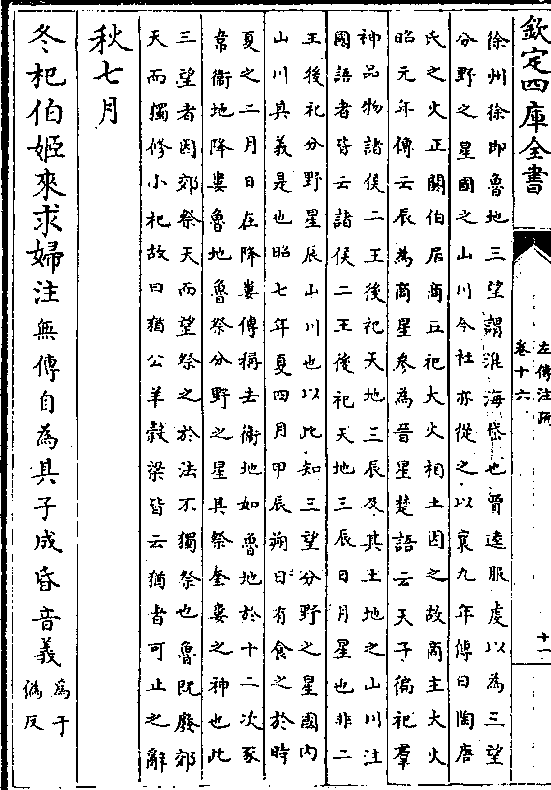 欽定四庫全書
左傳注疏
卷十六
十一
徐州徐即魯地三望謂淮海岱也賈逵服虔以為三望
分野之星國之山川今社亦從之以襄九年傳曰陶唐
氏之火正閼伯居商丘祀大火相土因之故商主大火
昭元年傳云辰為商星參為晉星楚語云天子徧祀羣
神品物諸侯二王後祀天地三辰及其土地之山川注
國語者皆云諸侯二王後祀天地三辰日月星也非二
王後祀分野星辰山川也以此知三望分野之星國内
山川其義是也昭七年夏四月甲辰朔日有食之於時
夏之二月日在降婁傳稱去衛地如魯地於十二次豕
韋衛地降婁魯地魯祭分野之星其祭奎婁之神也此
三望者因郊祭天而望祭之於法不獨祭也魯既廢郊
天而獨修小祀故曰猶公羊穀梁皆云猶者可止之辭
秋七月
冬杞伯姬來求婦注無傳自為其子成昏音義為于
偽反